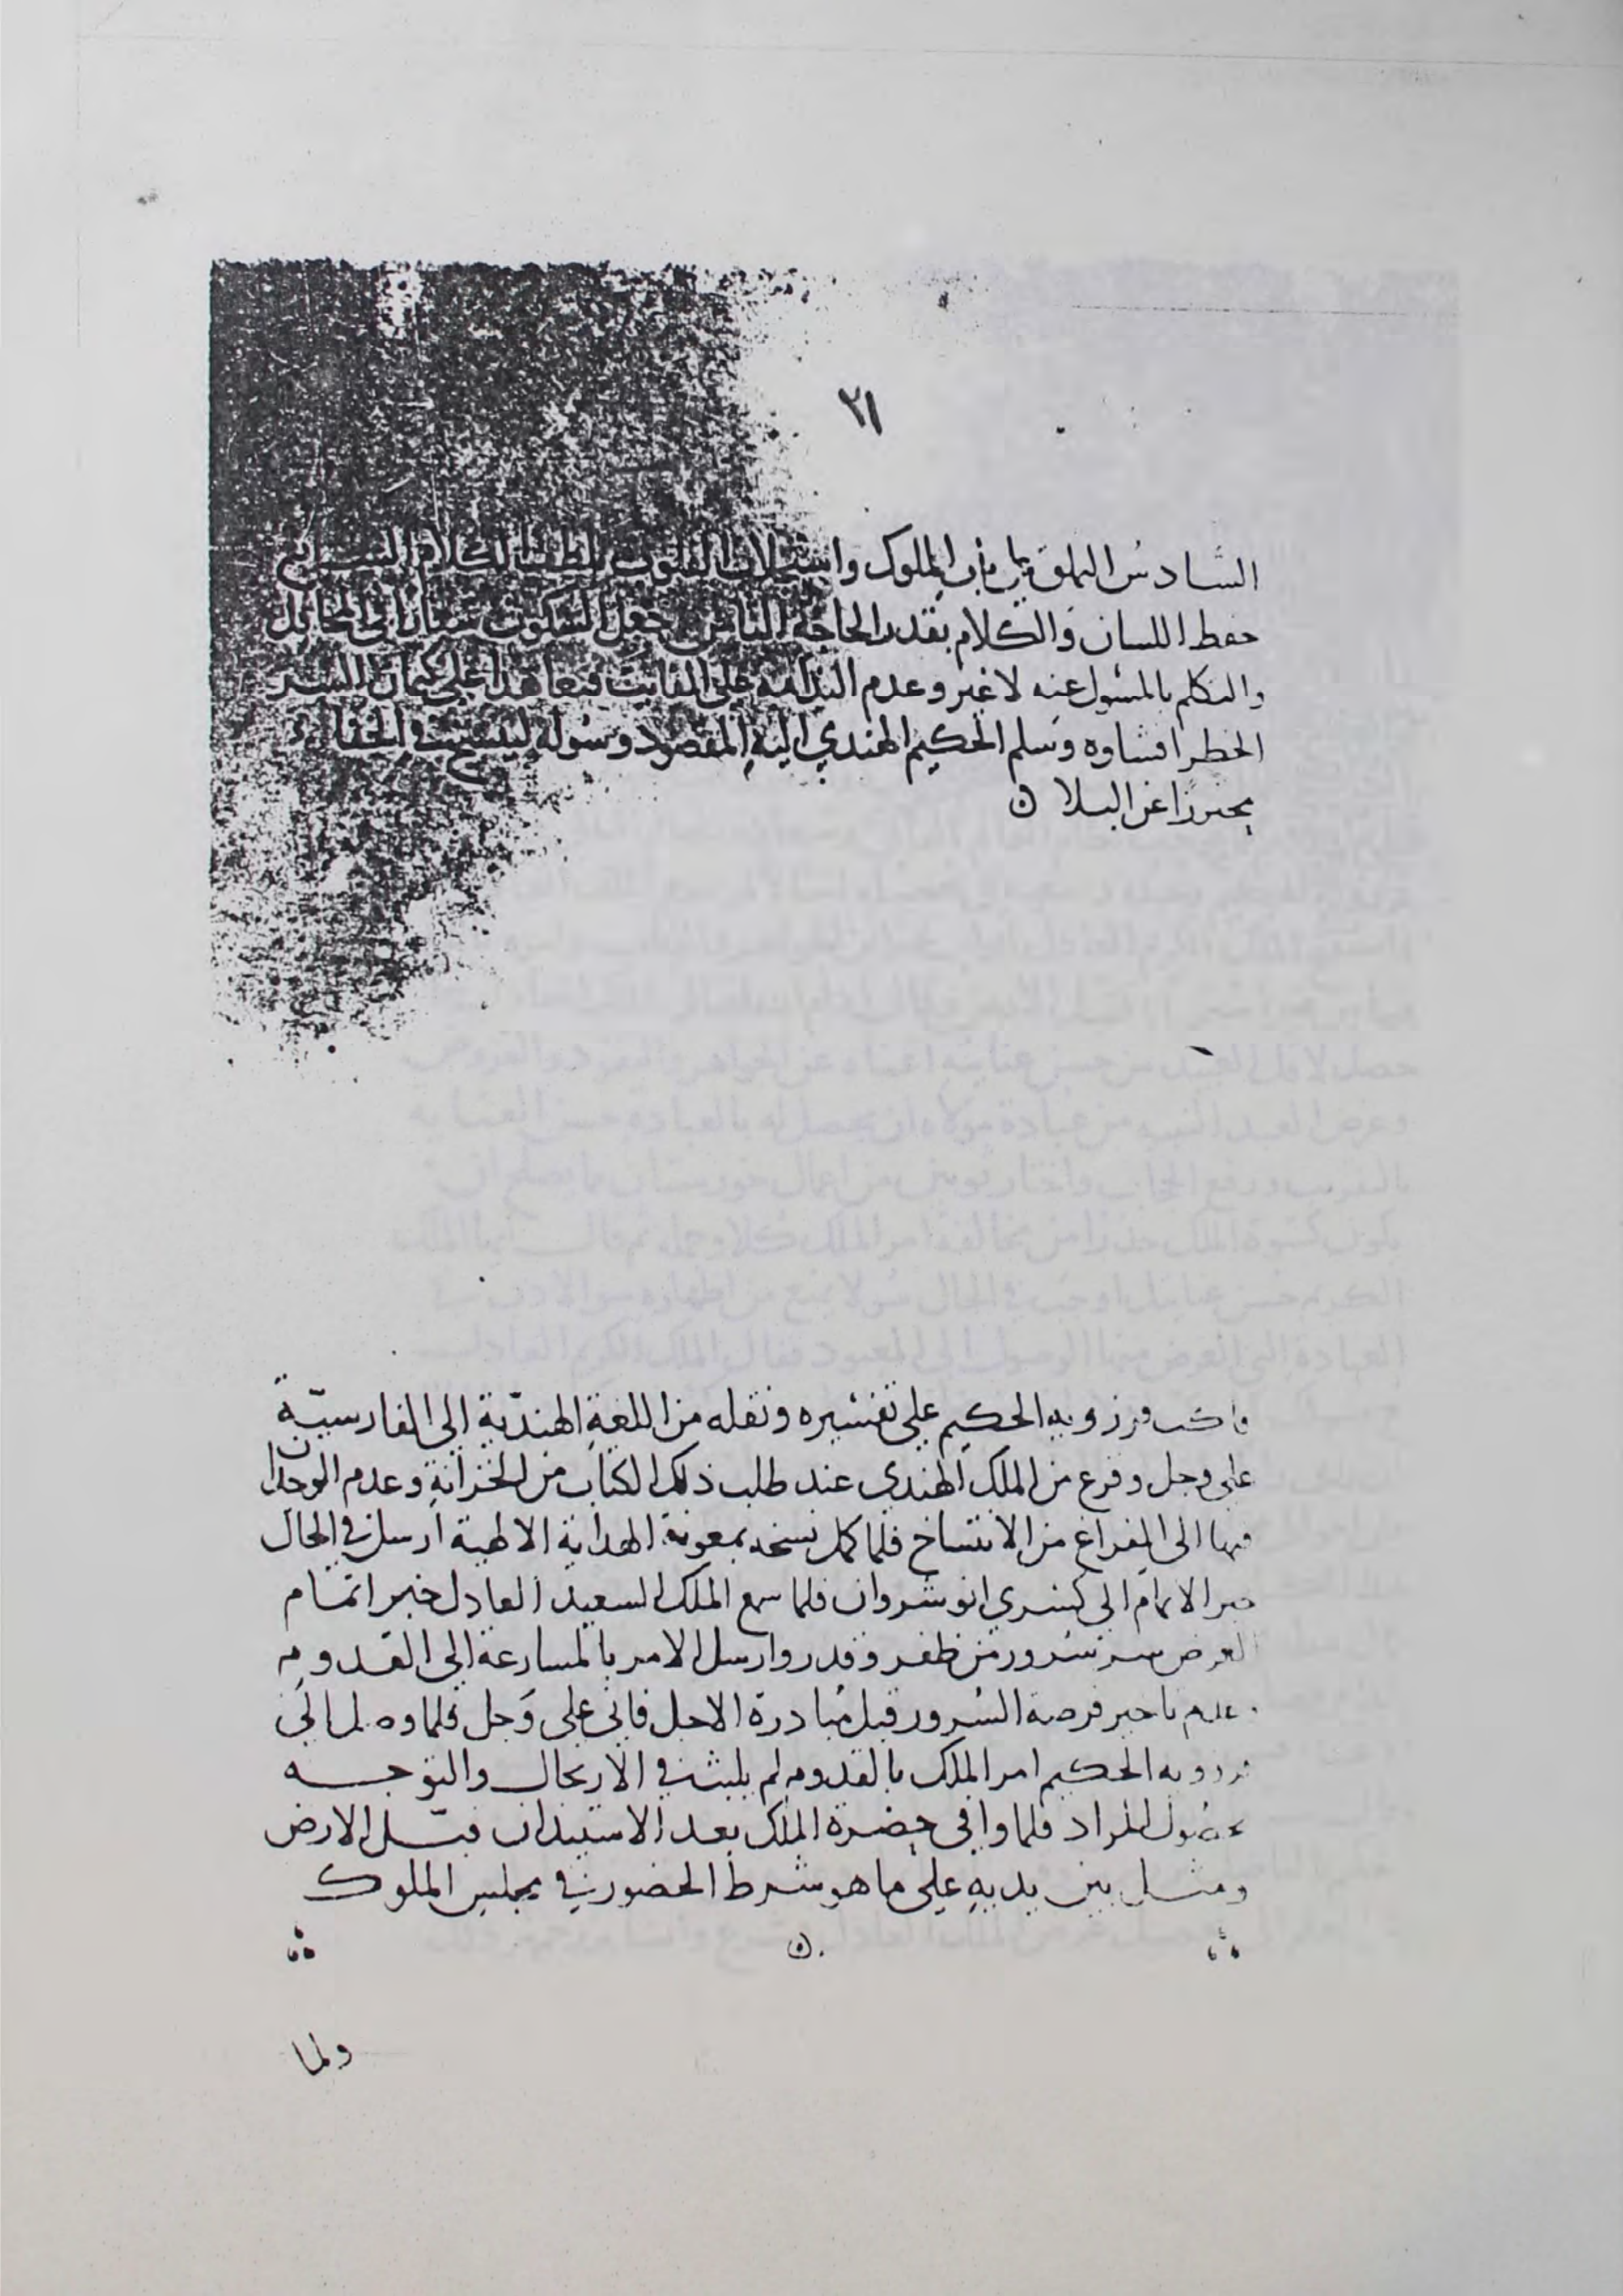 ٢١
السادس التملق بباب الملوك واستجلاب القلوب بلطف الكلام السابع
حفظ اللسان والكلام بقدر الحاجة الثامن جعل السكوت شعارا في المحافل
والتكلم بالمسئول عنه لا غير وعدم الندامة على الفايت فتعاهدا على كتمان السر
الخطر افشاوه وسلم الحكيم الهندي اليه المقصود وسوله لينسخ في الخفاء
محترزا عن البلا ن
فاكب فرزويه الحكيم على تفسيره ونقله من اللغة الهندية الى الفارسية
على وجل وفزع من الملك الهندي عند طلب ذلك الكتاب من الخزانة وعدم الوجدان
فيها الى الفراغ من الانتساخ فلما كمل نسخه بمعونة الهداية الالهية ارسل في الحال
خبر الاتمام الى كسرى انوشروان فلما سمع الملك السعيد العادل خبر اتمام
الغرض سر سرور من ظفر وقدر وارسل الامر بالمسارعة الى القدوم
وعدم تاخير فرصة السرور قبل مبادرة الاجل فاني على وجل فلما وصل الى
فرزويه الحكيم امر الملك بالقدوم لم يلبث في الارتحال والتوجه
بحصول المراد فلما وافى حضرة الملك بعد الاستيذان قبل الارض
ومثل بين يديه على ما هو شرط الحضور في مجلس الملوك
ن
ولما